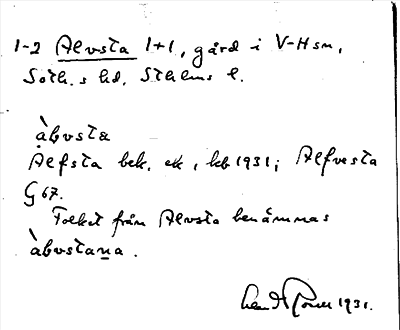 1-2 Alvsta 1+1, gård i V-Hsn,
Soth.s hd, Sthlms l.
àlvsta
Alfsta bek. ek, leb 1931; Alfvesta
G 67.
Folket från Alvsta benämnas
àlvstana.
1931.